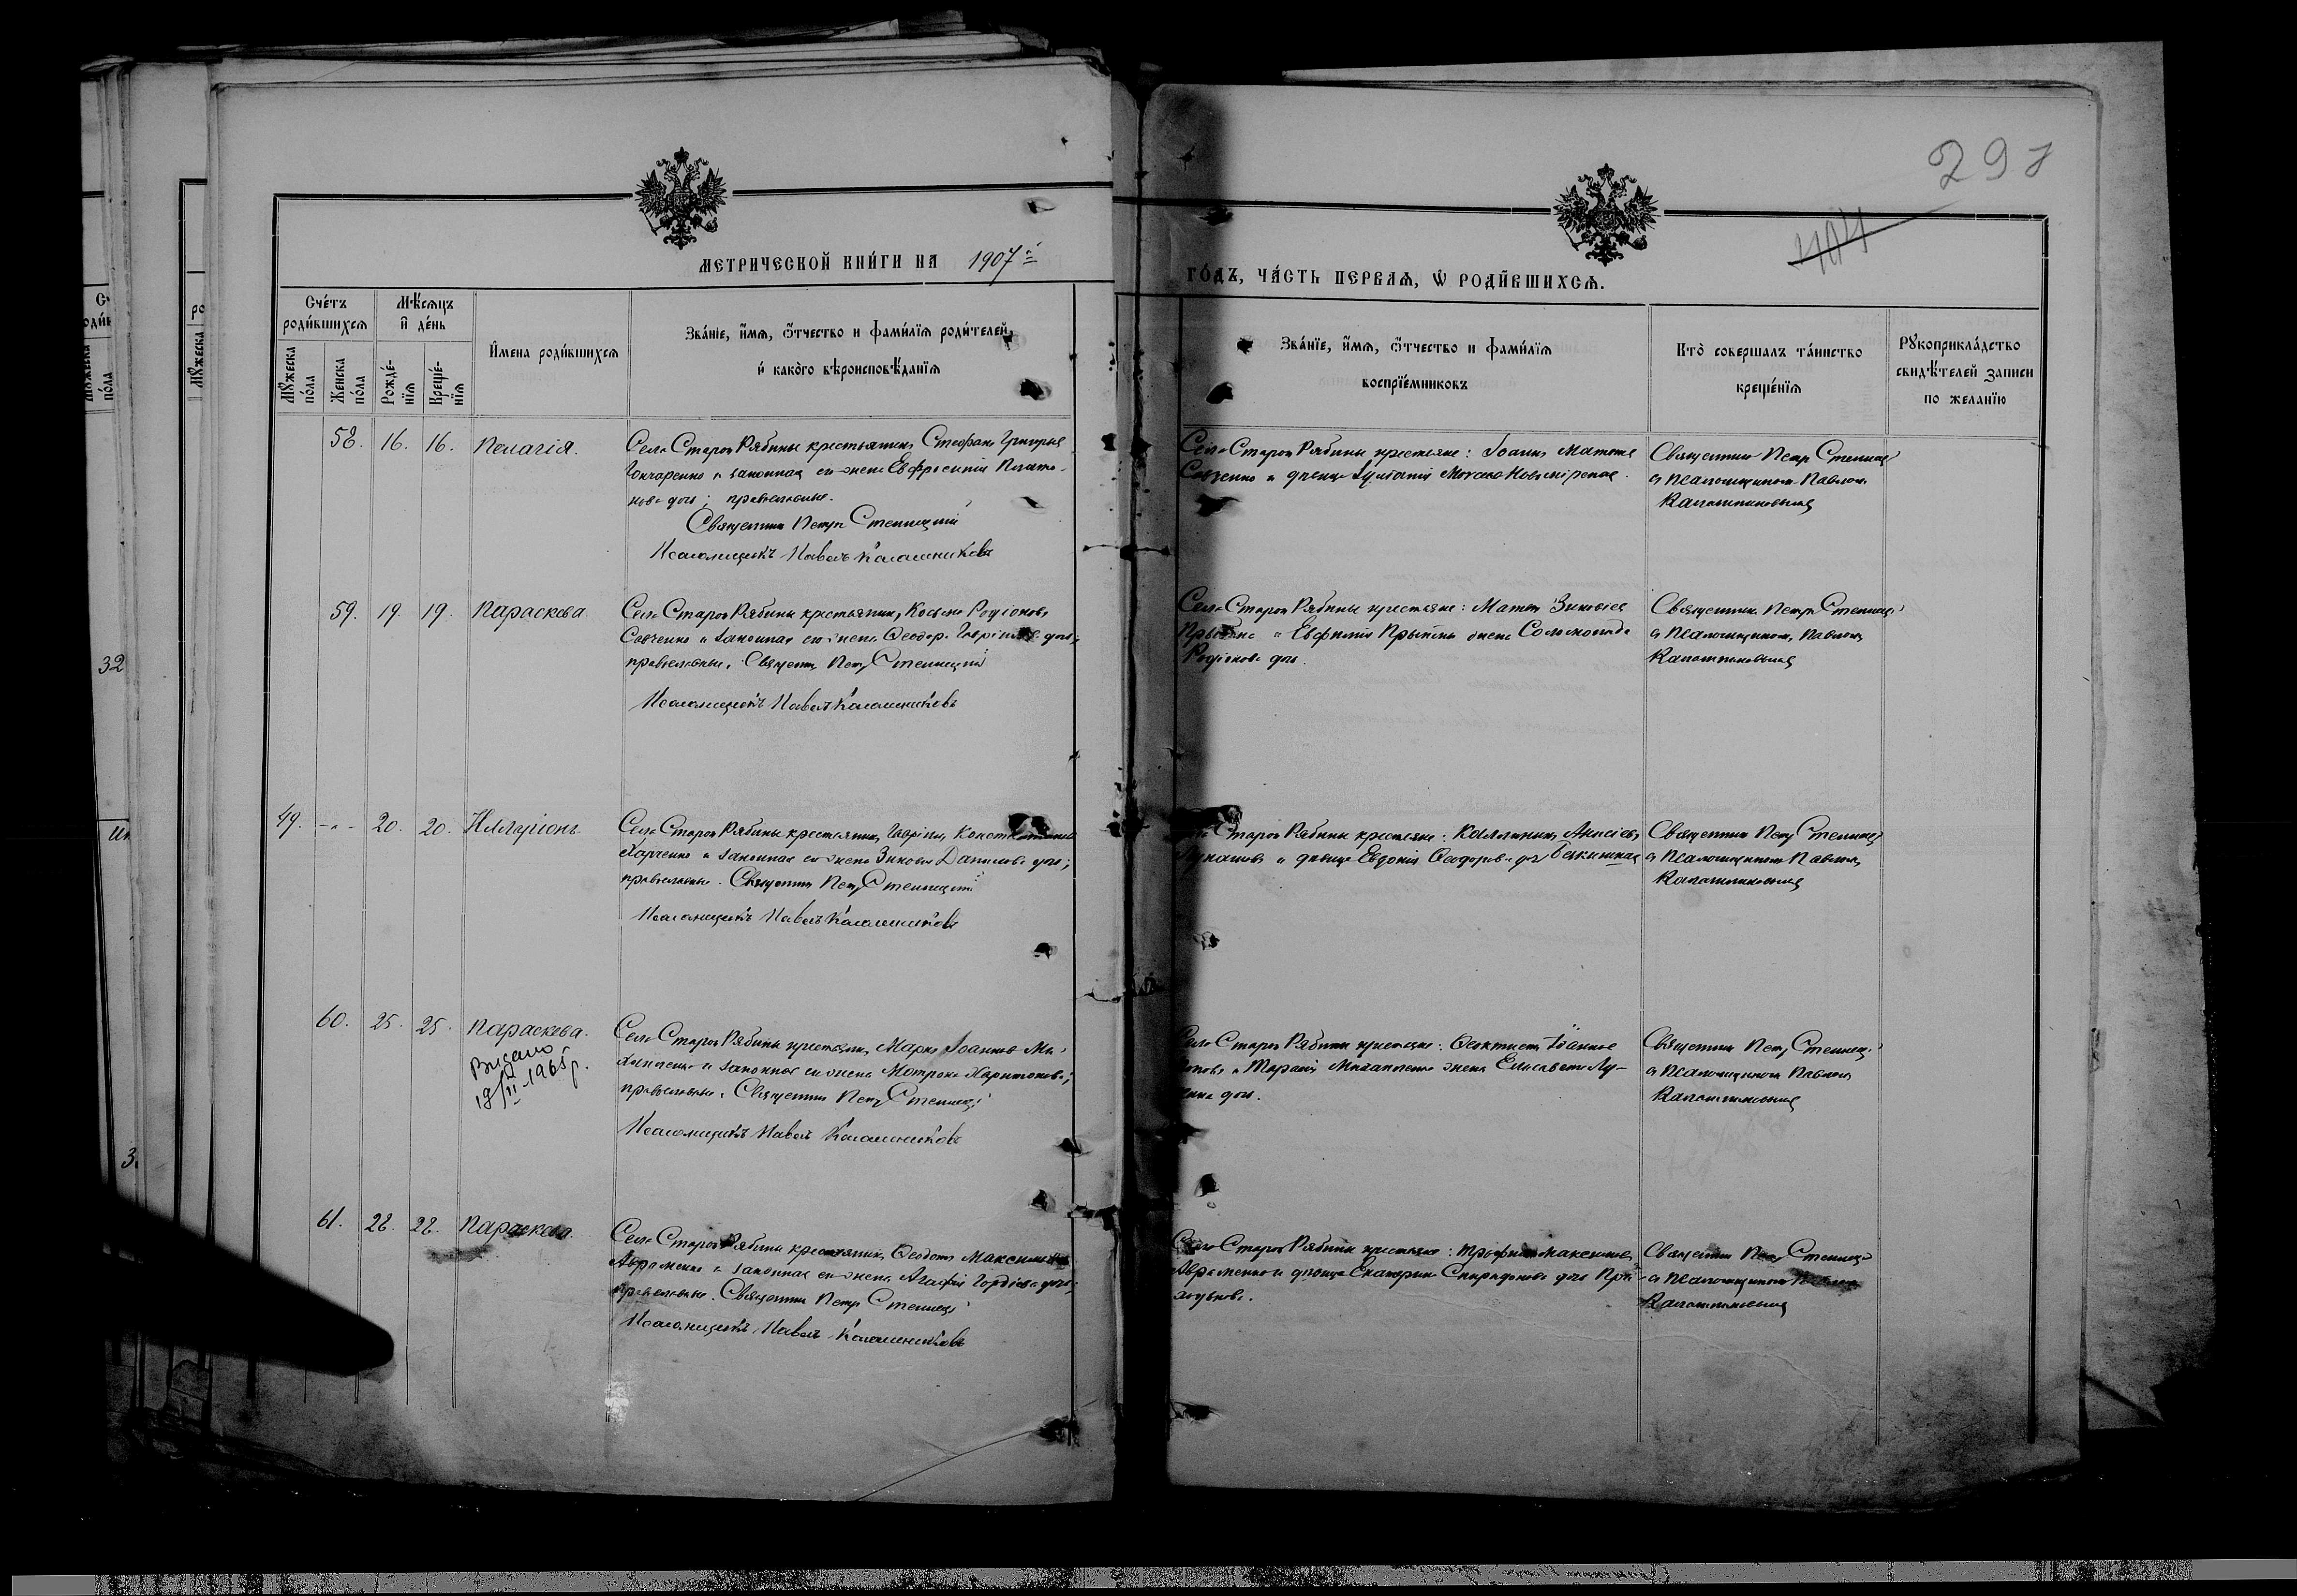 297
404
МЕТРИЧЕСКОЙ КНИ́ГИ НА 1907й
ГО́ДЪ, ЧА́СТЬ ПЕРВАЯ, Ѡ РОДИ́ВШИХСЯ.
Сче́тъ роди́вшихся
Мѣсяцъ и де́нь
Мꙋжеска по́ла
Женска по́ла
Рожде́-нїя
Креще́-нїя
Имена роди́вшихся
Зва́нїе, и́мя, ѻ́тчество и фами́лїя роди́телей,
и како́го вѣроисповѣ́данїя
Зва́нїе, и́мя, ѻ́тчество и фами́лїя
воспрїе́мниковъ
Кто̀ совершалъ та́инство
креще́нїя
Рꙋкоприкла́дство
свидѣ́телей записи
по жела́нїю
58. 16. 16. Пелагія.
Села Старой Рябины крестьянинъ Стефанъ Григорьев
Гончаренко и законная его жена Евфросинія Плато-
нова дочь; православные.
Священникъ Петръ Стеллецкій
Псаломщикъ Павелъ Калашниковъ
Села Старой Рябины крестьяне: Іоаннъ Матѳеев
Савченко и девица
Священникъ Петръ Стеллецкій
съ псаломщикомъ Павломъ
Калашниковымъ
59. 19. 19. Параскева
Села Старой Рябины крестьянинъ Косьма Родіоновъ
Савченко и законная его жена Ѳеодора Гавріилова дочь;
православные. Священникъ Петръ Стеллецкій
Псаломщикъ Павелъ Калашниковъ
Села Старой Рябины крестьяне: Матѳей Зиновіев
и Евфимія жена Соломонида
Родіонова дочь.
Священникъ Петръ Стеллецкій
съ псаломщикомъ Павломъ
Калашниковымъ
49. -"- 20. 20. Илларіонъ.
Села Старой Рябины крестьянинъ Гавріилъ Константиновъ
Харченко и законная его жена Зиновія Данилова дочь;
православные. Священникъ Петръ Стеллецкій
Псаломщикъ Павелъ Калашниковъ
Старой Рябины крестьяне: Каллиникъ
и девица Евдокія Ѳеодорова дочь
Священникъ Петръ Стеллецкій
съ псаломщикомъ Павломъ
Калашниковымъ
60. 25. 25. Параскева.
Видано
19/II-1965 р.
Села Старой Рябины крестьянинъ Марко Іоанновъ Ми-
и законная его жена Мотрона Харитонова;
православные. Священникъ Петръ Стеллецкій
Псаломщикъ Павелъ Калашниковъ
Села Старой Рябины крестьяне: Ѳеоктистъ Іоаннов
жена Елисавета Лу-
дочь.
Священникъ Петръ Стеллецкій
съ псаломщикомъ Павломъ
Калашниковымъ
61. 28. 28. Параскева.
Села Старой Рябины крестьянинъ Ѳеодотъ Максимовъ
Авраменко и законная его жена Агафія Гордіева дочь;
православные. Священникъ Петръ Стеллецкій
Псаломщикъ Павелъ Калашниковъ
Села Старой Рябины крестьяне: Трофимъ Максимовъ
Авраменко и девица Екатерина Спиридонова дочь При-
ходькова.
Священникъ Петръ Стеллецкій
съ псаломщикомъ Павломъ
Калашниковымъ
32